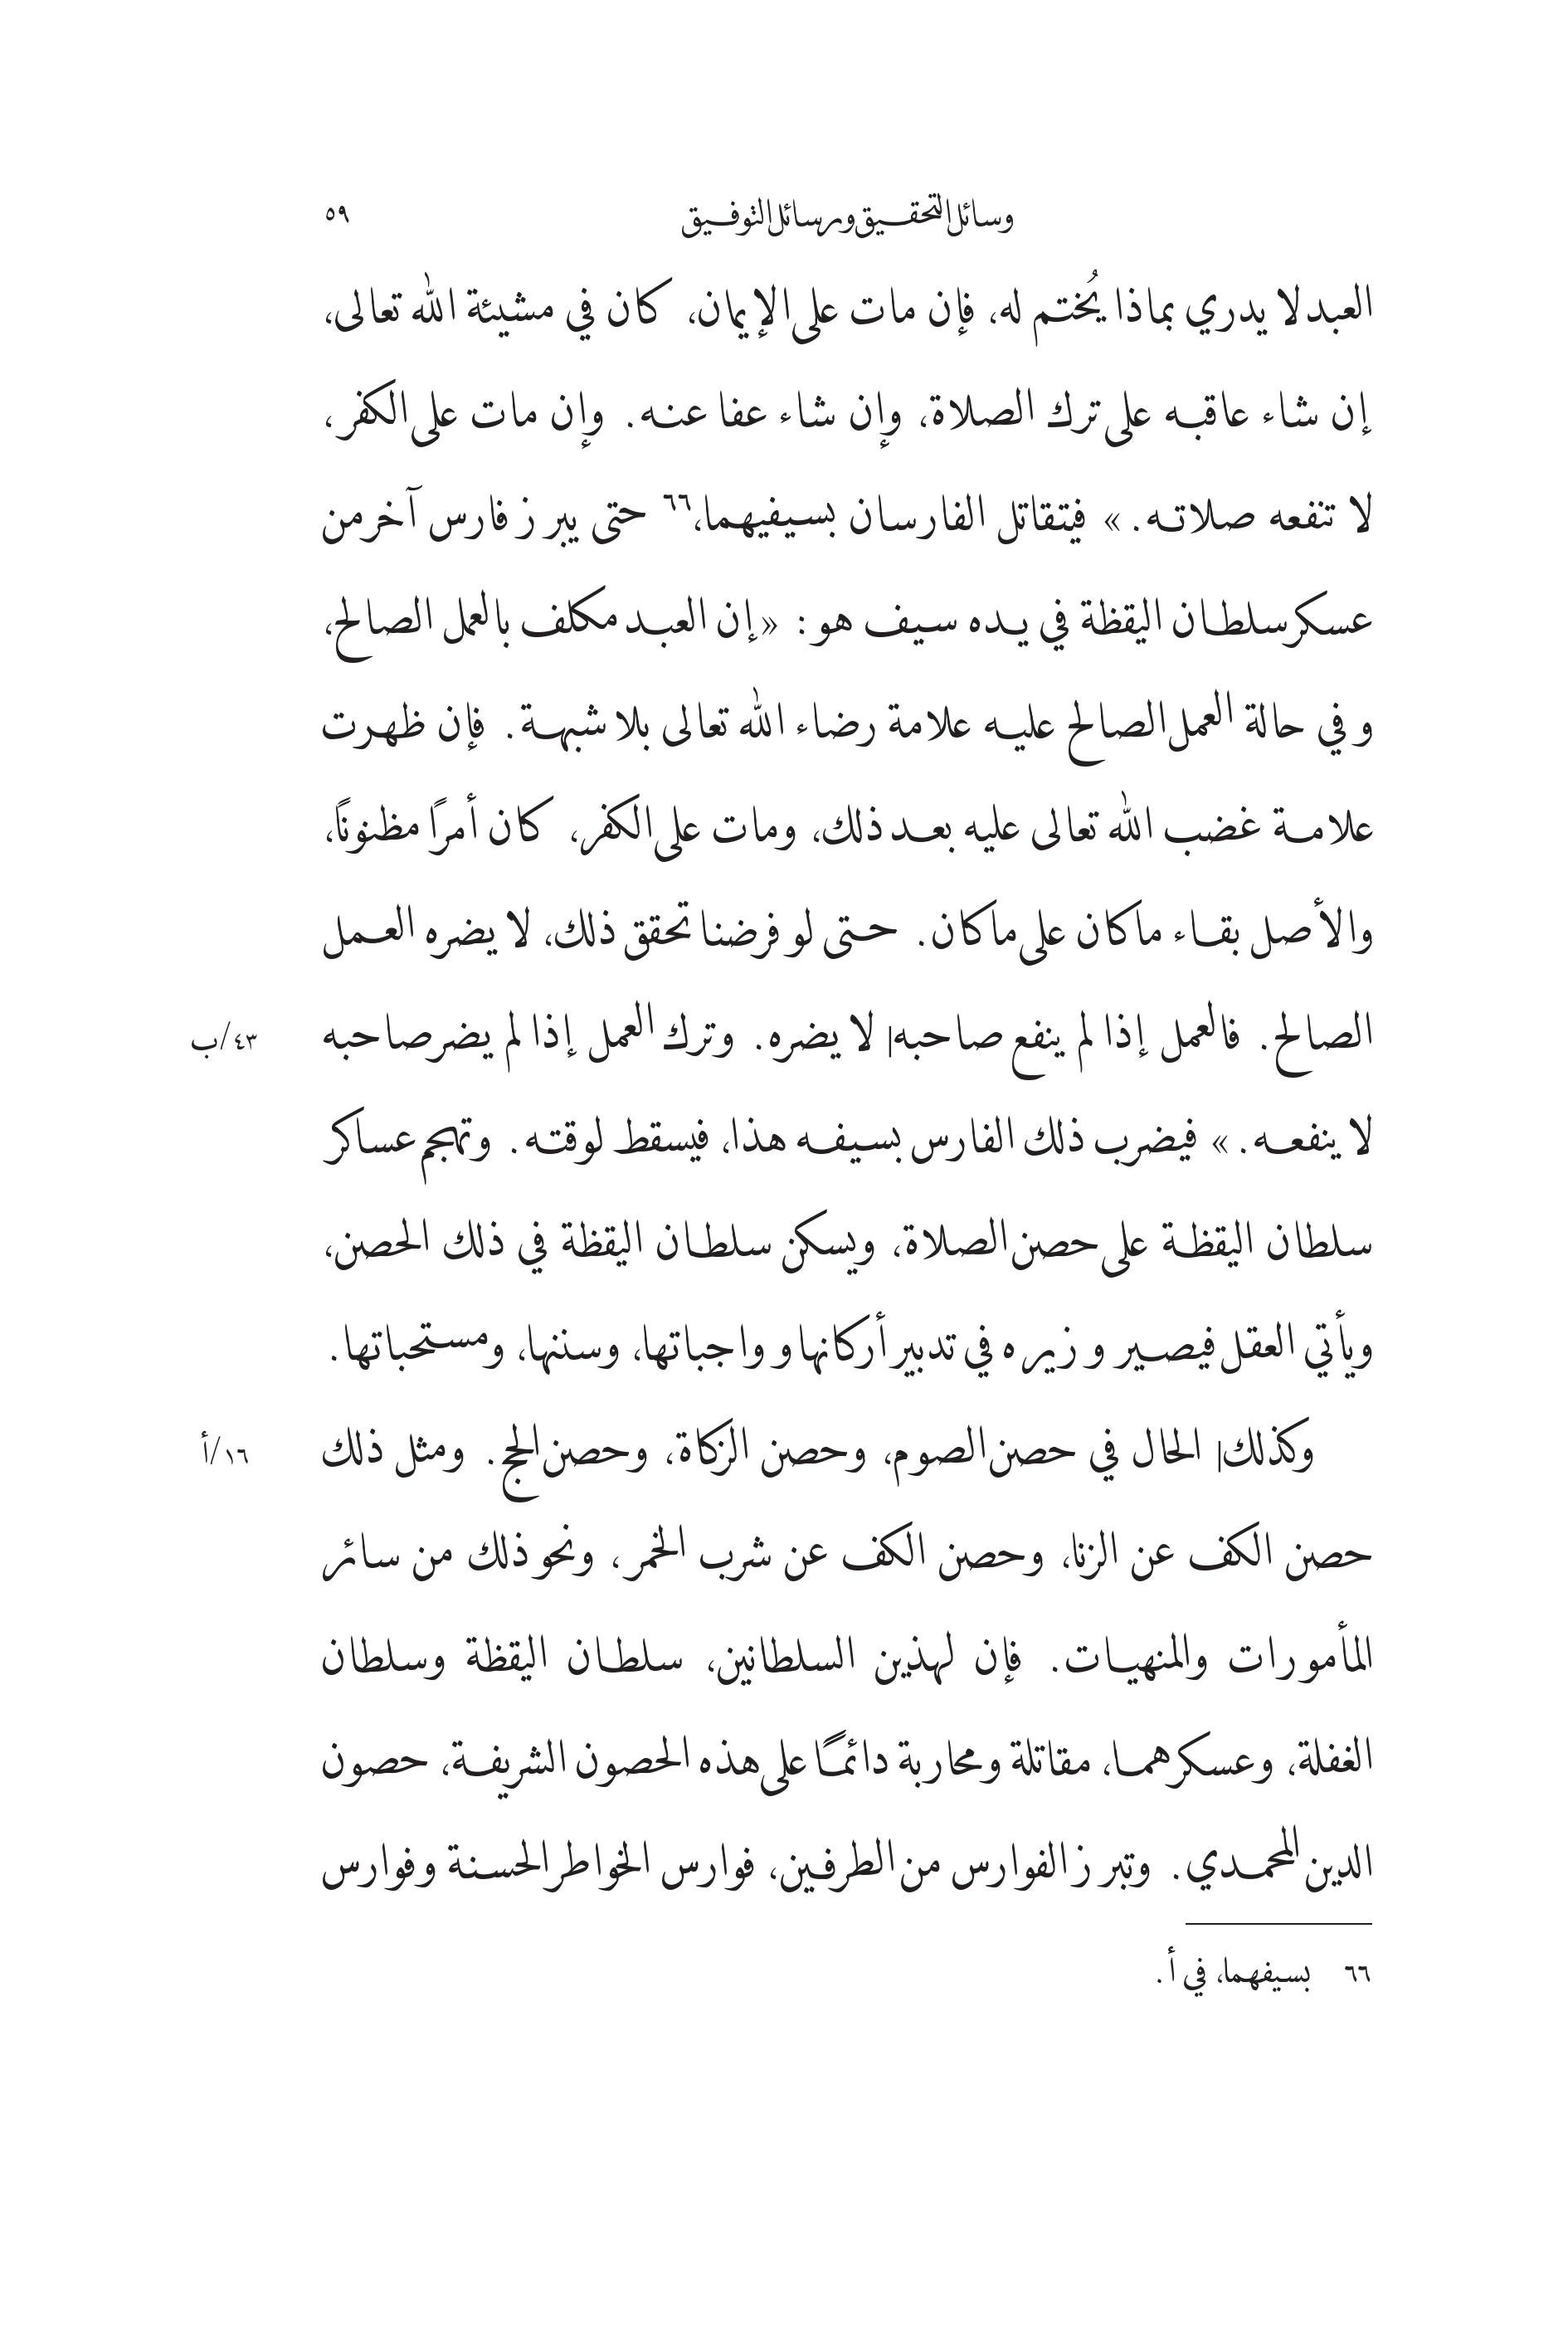 وسائل التحقيق ورسائل التوفيق ٥٩
العبد لا يدري بماذا يُختم له، فإن مات على الإيمان، كان في مشيئة الله تعالى،
إن شاء عاقبه على ترك الصلاة، وإن شاء عفا عنه. وإن مات على الكفر،
لا تنفعه صلاته.» فيتقاتل الفارسان بسيفيهما،٦٦ حتى يبرز فارس آخر من
عسكر سلطان اليقظة في يده سيف هو: «إن العبد مكلف بالعمل الصالح،
وفي حالة العمل الصالح عليه علامة رضاء الله تعالى بلا شبهة. فإن ظهرت
علامة غضب الله تعالى عليه بعد ذلك، ومات على الكفر، كان أمرًا مظنونًا،
والأصل بقاء ما كان على ما كان. حتى لو فرضنا تحقق ذلك، لا يضره العمل
الصالح. فالعمل إذا لم ينفع صاحبه| لا يضره. وترك العمل إذا لم يضر صاحبه ٤٣/ب
لا ينفعه.» فيضرب ذلك الفارس بسيفه هذا، فيسقط لوقته. وتهجم عساكر
سلطان اليقظة على حصن الصلاة، ويسكن سلطان اليقظة في ذلك الحصن،
ويأتي العقل فيصير وزيره في تدبير أركانها وواجباتها، وسننها، ومستحباتها.
وكذلك| الحال في حصن الصوم، وحصن الزكاة، وحصن الحج. ومثل ذلك ١٦/أ
حصن الكف عن الزنا، وحصن الكف عن شرب الخمر، ونحو ذلك من سائر
المأمورات والمنهيات. فإن لهذين السلطانين، سلطان اليقظة وسلطان
الغفلة، وعسكرهما، مقاتلة ومحاربة دائمًا على هذه الحصون الشريفة، حصون
الدين المحمدي. وتبرز الفوارس من الطرفين، فوارس الخواطر الحسنة وفوارس
٦٦ بسيفهما، في أ.